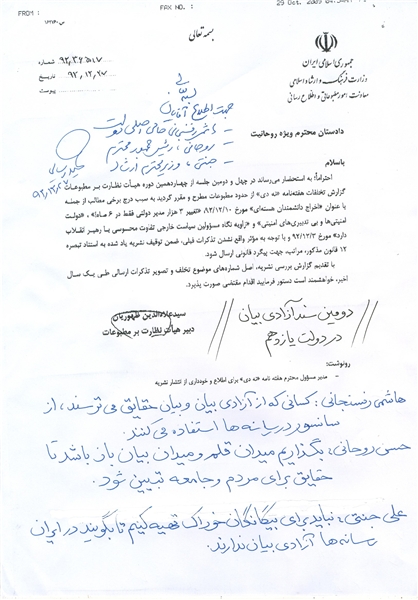 FROM :
FAX NO. :
29 Oct. 2009
بسمه تعالی
شماره ۹۲/۳۶۵۱۷
تاریخ ۹۲/۱۲/۲۷
پیوست
جمهوری اسلامی ایران
وزارت فرهنگ و ارشاد اسلامی
معاونت امور مطبوعاتی و اطلاع رسانی
جهت اطلاع آقایان
- هاشمی رفسنجانی حامی اصلی دولت
- روحانی، رئیس جمهور محترم
- جنتی، وزیر محترم ارشاد
دادستان محترم ویژه روحانیت
باسلام
احتراماً؛ به استحضار می‌رساند در چهل و دومین جلسه از چهاردهمین دوره هیأت نظارت بر مطبوعات
گزارش تخلفات هفته‌نامه «۹ دی» از حدود مطبوعات مطرح و مقرر گردید به سبب درج برخی مطالب از جمله
با عنوان «اخراج دانشمندان هسته‌ای» مورخ ۹۲/۱۲/۱۰ «تغییر ۳ هزار مدیر دولتی فقط در ۶ ماه»، «دولت
امنیتی‌ها و بی تدبیری‌های امنیتی» و «زاویه نگاه مسؤولین سیاست خارجی تفاوت محسوسی با رهبر انقلاب
دارد» مورخ ۹۲/۱۲/۳ و با توجه به مؤثر واقع نشدن تذکرات قبلی، ضمن توقیف نشریه یاد شده به استناد تبصره
۱۲ قانون مذکور مراتب، جهت پیگرد قانونی ارسال شود.
با تقدیم گزارش بررسی نشریه، اصل شماره‌های موضوع تخلف و تصویر تذکرات ارسالی طی یک سال
اخیر، خواهشمند است دستور فرمایید اقدام مقتضی صورت پذیرد.
سیدعلاءالدین ظهوریان
دبیر هیأت نظارت بر مطبوعات
دومین سند آزادی بیان
در دولت یازدهم
رونوشت:
- مدیر مسؤول محترم هفته نامه «۹ دی» برای اطلاع و خودداری از انتشار نشریه
هاشمی رفسنجانی: کسانی که از آزادی بیان و بیان حقایق می ترسند، از
سانسور در رسانه ها استفاده می کنند.
حسن روحانی: بگذاریم میدان قلم و میدان بیان باز باشد تا
حقایق برای مردم و جامعه تبیین شود.
علی جنتی: نباید برای بیگانگان خوراک تهیه کنیم تا بگویند در ایران
رسانه ها آزادی بیان ندارند.